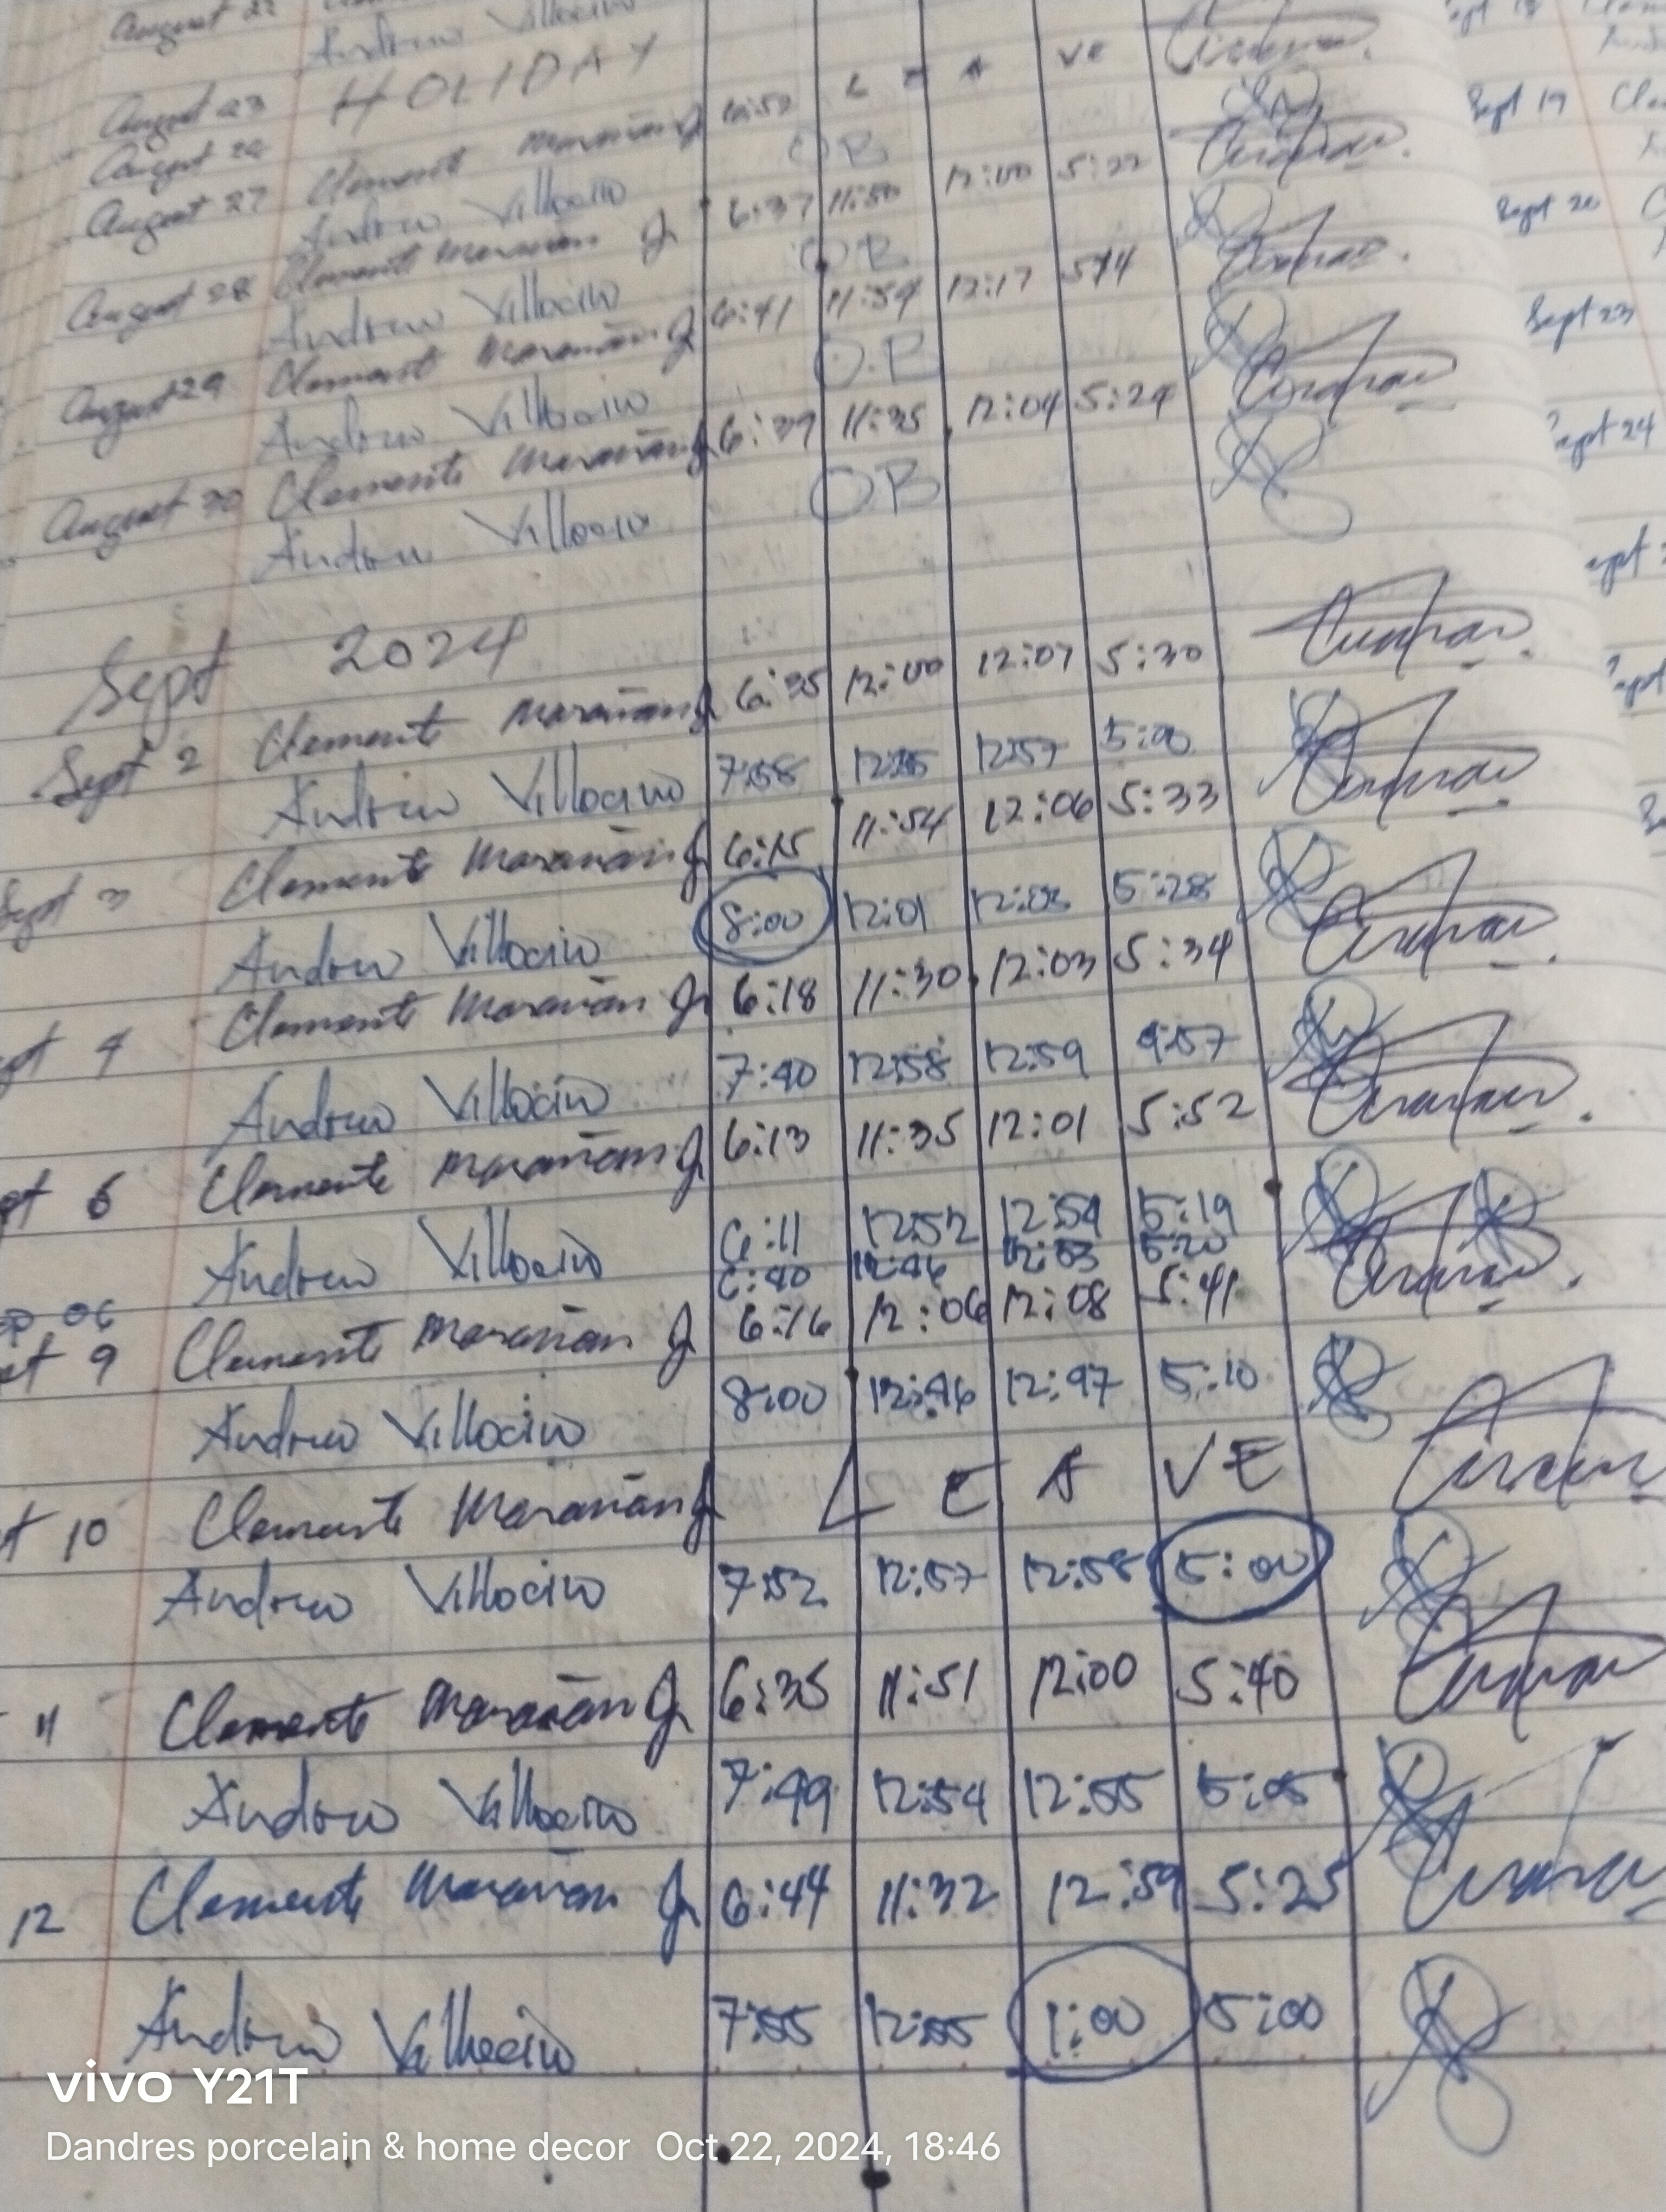 August 22
Andrew Villocino
August 23 HOLIDAY
August 26 L E A VE
August 27 Clemente Marañan Jr 6:52
Andrew Villocino OB
August 28 Clemente Marañan Jr 6:37 11:50 12:00 5:22
Andrew Villocino OB
August 29 Clemente Marañan Jr 6:41 11:54 12:17 5:14
Andrew Villocino O.B
August 30 Clemente Marañan Jr 6:39 11:35 12:04 5:24
Andrew Villocino OB
Sept 2024
Sept 2 Clemente Marañan Jr 6:35 12:00 12:07 5:30
Andrew Villocino 7:58 12:57 5:00
Sept 3 Clemente Marañan Jr 6:15 11:54 12:06 5:33
Andrew Villocino 8:00 12:01 12:03 5:28
pt 4 Clemente Marañan Jr 6:18 11:30 12:03 5:34
Andrew Villocino 7:40 12:58 12:59 4:57
pt 6 Clemente Marañan Jr 6:13 11:35 12:01 5:52
Andrew Villocino 6:11 12:52 12:54 5:19
p 06 6:40 12:46 12:53 5:20
pt 9 Clemente Marañan Jr 6:16 12:06 12:08 5:41
Andrew Villocino 8:00 12:46 12:47 5:10
t 10 Clemente Marañan Jr L E A VE
Andrew Villocino 7:52 12:57 12:58 5:00
11 Clemente Marañan Jr 6:35 11:51 12:00 5:40
Andrew Villocino 7:49 12:54 12:55 5:05
12 Clemente Marañan Jr 6:44 11:32 12:59 5:25
Andrew Villocino 7:55 12:55 1:00 5:00
Sept 18
Sept 19
Sept 20
Sept 23
Sept 24
vivo Y21T
Dandres porcelain & home decor Oct 22, 2024, 18:46